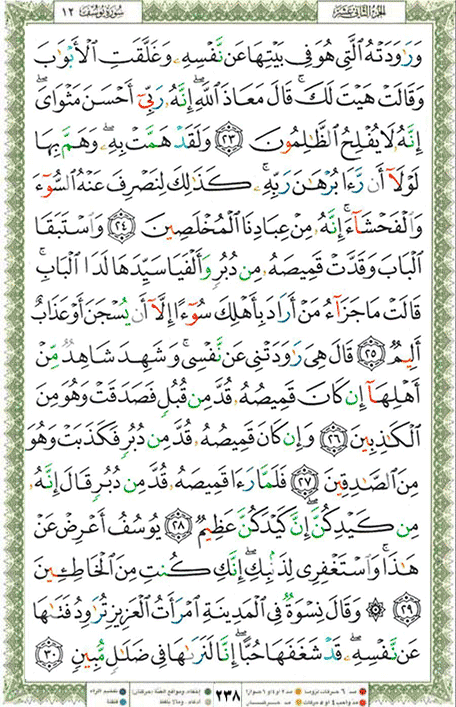 سورة يوسف ١٢ الجزء الثاني عشر
وَرَٰوَدَتْهُ ٱلَّتِى هُوَ فِى بَيْتِهَا عَن نَّفْسِهِۦ وَغَلَّقَتِ ٱلْأَبْوَٰبَ
وَقَالَتْ هَيْتَ لَكَ ۚ قَالَ مَعَاذَ ٱللَّهِ ۖ إِنَّهُۥ رَبِّىٓ أَحْسَنَ مَثْوَاىَ ۖ
إِنَّهُۥ لَا يُفْلِحُ ٱلظَّٰلِمُونَ ٢٣ وَلَقَدْ هَمَّتْ بِهِۦ ۖ وَهَمَّ بِهَا
لَوْلَآ أَن رَّءَا بُرْهَٰنَ رَبِّهِۦ ۚ كَذَٰلِكَ لِنَصْرِفَ عَنْهُ ٱلسُّوٓءَ
وَٱلْفَحْشَآءَ ۚ إِنَّهُۥ مِنْ عِبَادِنَا ٱلْمُخْلَصِينَ ٢٤ وَٱسْتَبَقَا
ٱلْبَابَ وَقَدَّتْ قَمِيصَهُۥ مِن دُبُرٍ وَأَلْفَيَا سَيِّدَهَا لَدَا ٱلْبَابِ ۚ
قَالَتْ مَا جَزَآءُ مَنْ أَرَادَ بِأَهْلِكَ سُوٓءًا إِلَّآ أَن يُسْجَنَ أَوْ عَذَابٌ
أَلِيمٌ ٢٥ قَالَ هِىَ رَٰوَدَتْنِى عَن نَّفْسِى ۚ وَشَهِدَ شَاهِدٌ مِّنْ
أَهْلِهَآ إِن كَانَ قَمِيصُهُۥ قُدَّ مِن قُبُلٍ فَصَدَقَتْ وَهُوَ مِنَ
ٱلْكَٰذِبِينَ ٢٦ وَإِن كَانَ قَمِيصُهُۥ قُدَّ مِن دُبُرٍ فَكَذَبَتْ وَهُوَ
مِنَ ٱلصَّٰدِقِينَ ٢٧ فَلَمَّا رَءَا قَمِيصَهُۥ قُدَّ مِن دُبُرٍ قَالَ إِنَّهُۥ
مِن كَيْدِكُنَّ ۖ إِنَّ كَيْدَكُنَّ عَظِيمٌ ٢٨ يُوسُفُ أَعْرِضْ عَنْ
هَٰذَا ۚ وَٱسْتَغْفِرِى لِذَنۢبِكِ ۖ إِنَّكِ كُنتِ مِنَ ٱلْخَاطِـِٔينَ
٢٩ ۞ وَقَالَ نِسْوَةٌ فِى ٱلْمَدِينَةِ ٱمْرَأَتُ ٱلْعَزِيزِ تُرَٰوِدُ فَتَىٰهَا
عَن نَّفْسِهِۦ ۖ قَدْ شَغَفَهَا حُبًّا ۖ إِنَّا لَنَرَىٰهَا فِى ضَلَٰلٍ مُّبِينٍ ٣٠
٢٣٨